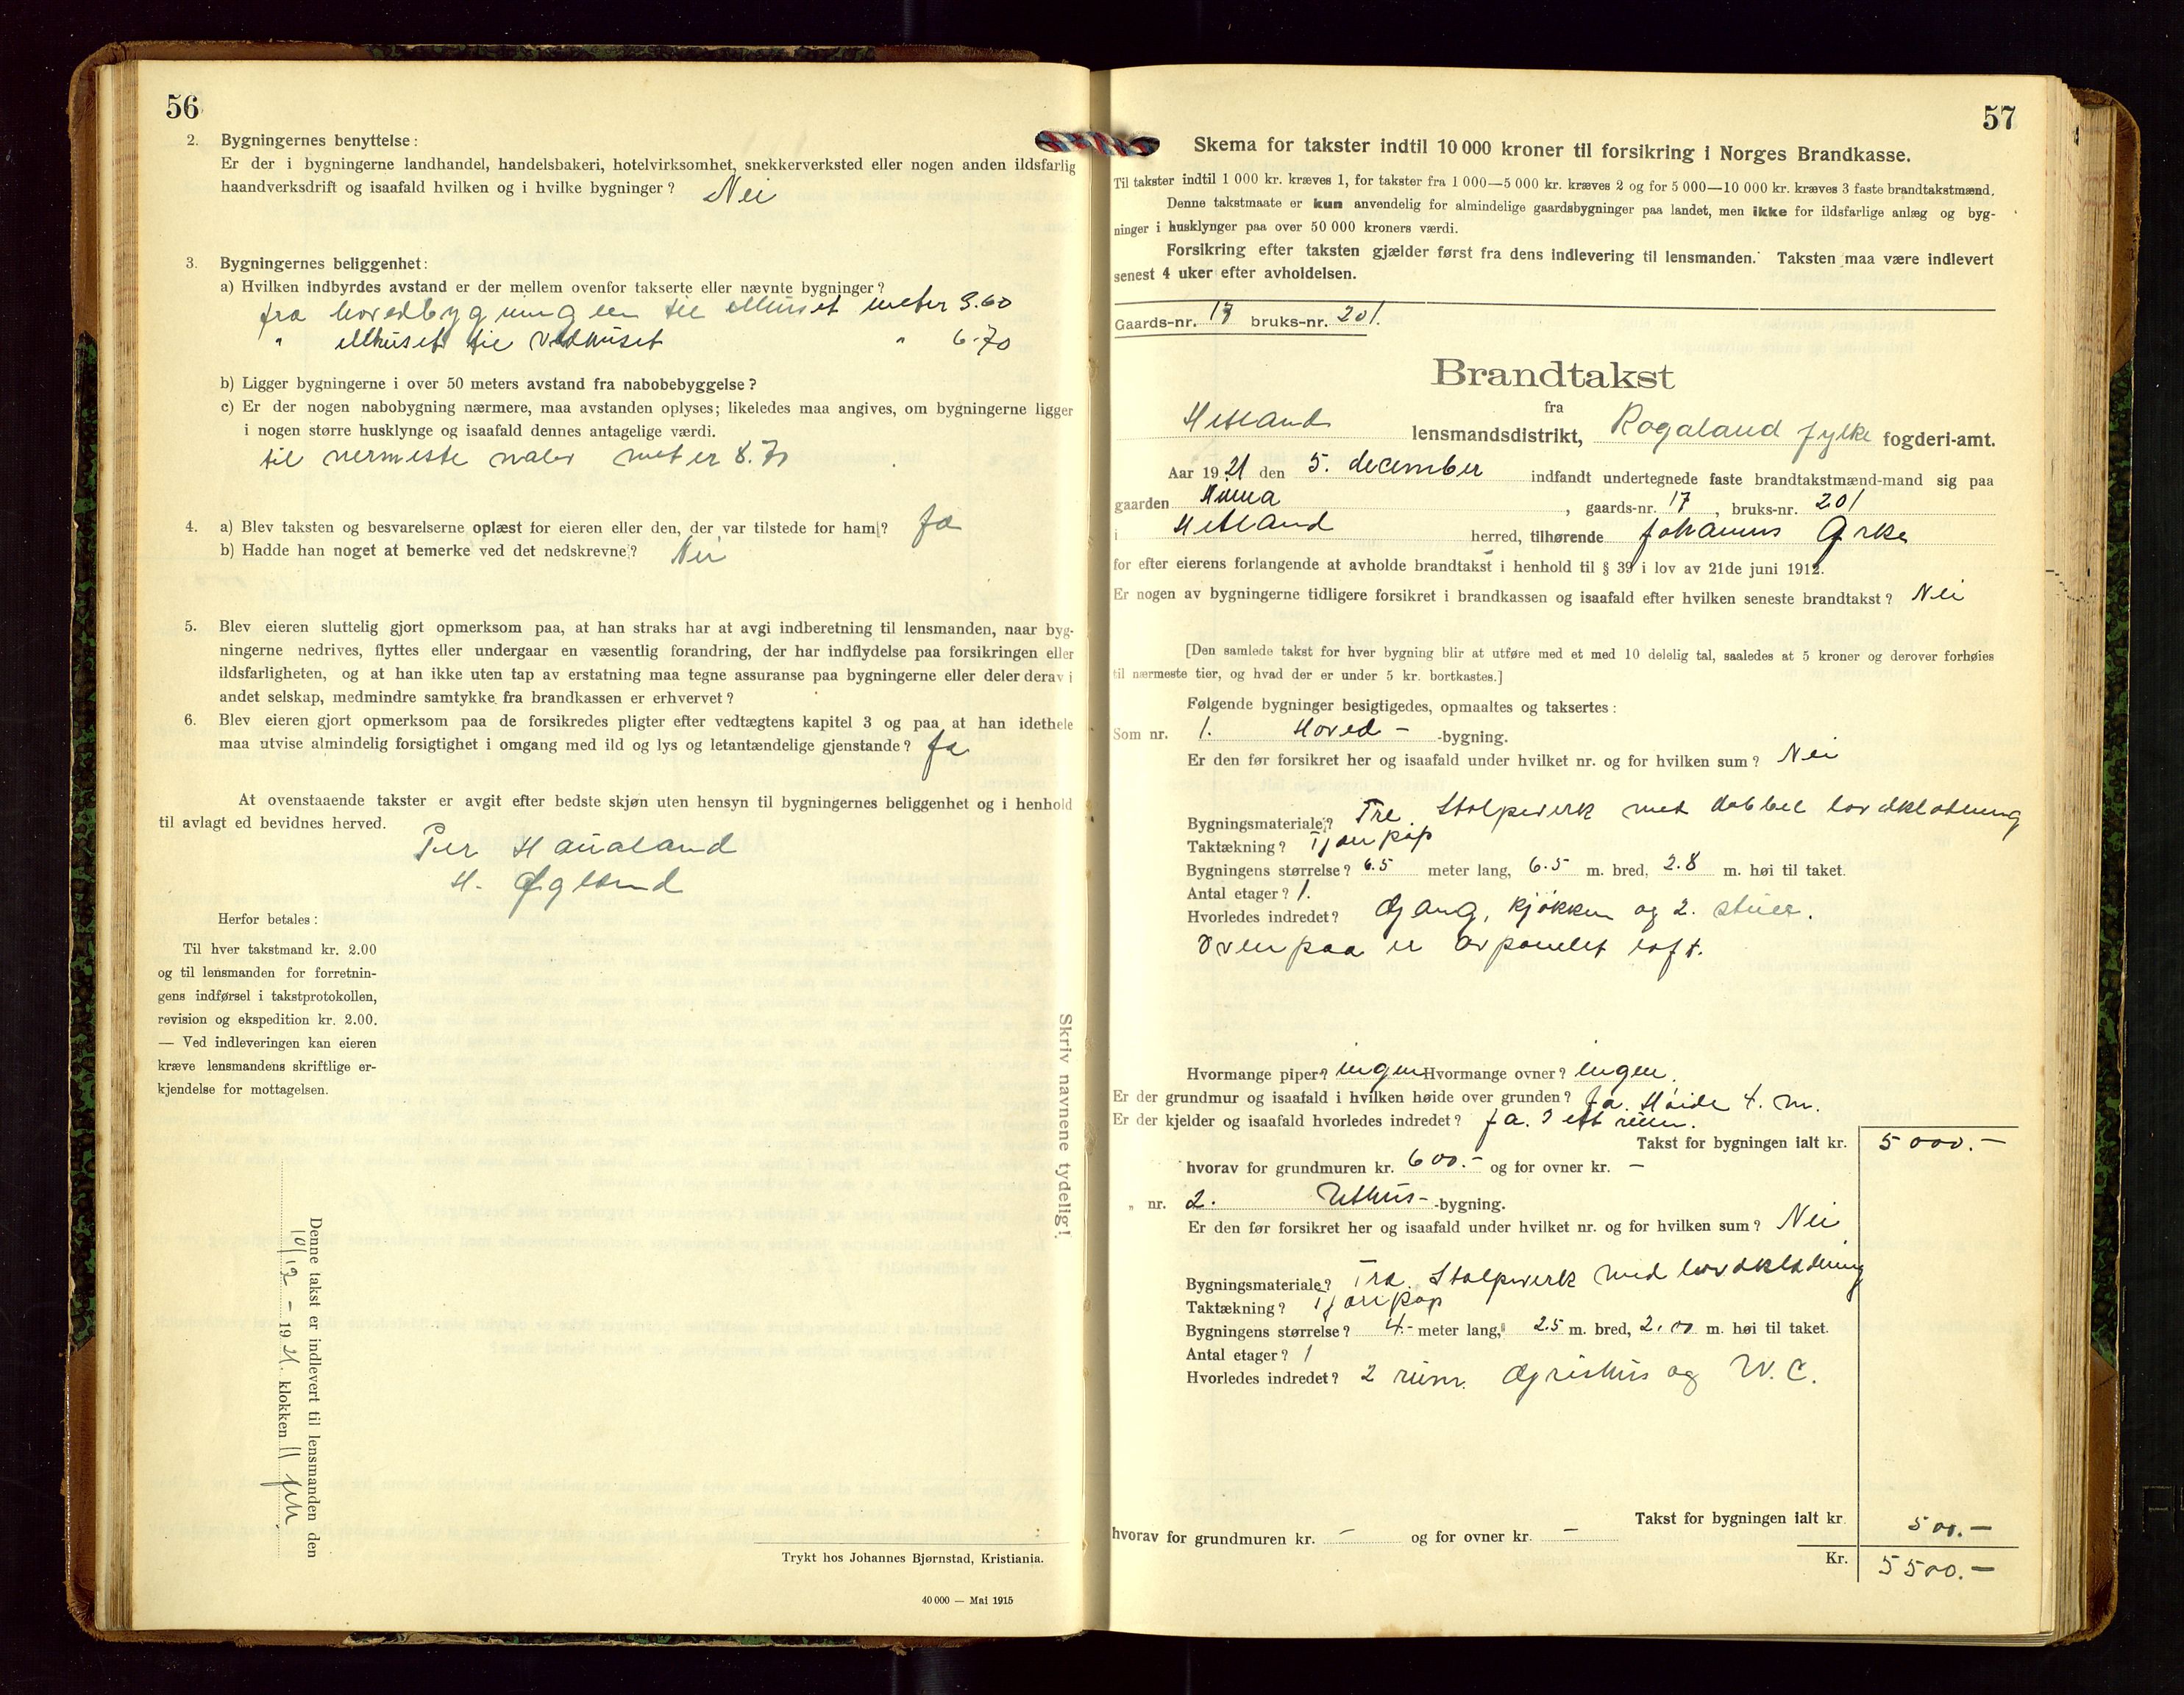 56
2. Bygningernes benyttelse:
Er der i bygningerne landhandel, handelsbakeri, hotelvirksomhet, snekkerverksted eller nogen anden ildsfarlig
haandverksdrift og isaafald hvilken og i hvilke bygninger? Nei
3. Bygningernes beliggenhet:
a) Hvilken indbyrdes avstand er der mellem ovenfor takserte eller nævnte bygninger?
fra hovedbygningen til uthuset meter 3.60
" uthuset til vedhuset " 6.70
b) Ligger bygningerne i over 50 meters avstand fra nabobebyggelse?
c) Er der nogen nabobygning nærmere, maa avstanden oplyses; likeledes maa angives, om bygningerne ligger
i nogen større husklynge og isaafald dennes antagelige værdi.
til nermeste nabo meter 8.70
4. a) Blev taksten og besvarelserne oplæst for eieren eller den, der var tilstede for ham? Ja
b) Hadde han noget at bemerke ved det nedskrevne? Nei
5. Blev eieren sluttelig gjort opmerksom paa, at han straks har at avgi indberetning til lensmanden, naar byg-
ningerne nedrives, flyttes eller undergaar en væsentlig forandring, der har indflydelse paa forsikringen eller
ildsfarligheten, og at han ikke uten tap av erstatning maa tegne assuranse paa bygningerne eller deler derav i
andet selskap, medmindre samtykke fra brandkassen er erhvervet?
6. Blev eieren gjort opmerksom paa de forsikredes pligter efter vedtægtens kapitel 3 og paa at han idethele
maa utvise almindelig forsigtighet i omgang med ild og lys og letantændelige gjenstande? Ja
At ovenstaaende takster er avgit efter bedste skjøn uten hensyn til bygningernes beliggenhet og i henhold
til avlagt ed bevidnes herved.
Per Haualand
H. Øgland
Herfor betales:
Til hver takstmand kr. 2.00
og til lensmanden for forretnin-
gens indførsel i takstprotokollen,
revision og ekspedition kr. 2.00.
— Ved indleveringen kan eieren
kræve lensmandens skriftlige er-
kjendelse for mottagelsen.
Skriv navnene tydelig!
Denne takst er indlevert til lensmanden den
10/12 - 1921. klokken 11 fm
Trykt hos Johannes Bjørnstad, Kristiania.
40 000 — Mai 1915
57
Skema for takster indtil 10 000 kroner til forsikring i Norges Brandkasse.
Til takster indtil 1 000 kr. kræves 1, for takster fra 1 000—5 000 kr. kræves 2 og for 5 000—10 000 kr. kræves 3 faste brandtakstmænd.
Denne takstmaate er kun anvendelig for almindelige gaardsbygninger paa landet, men ikke for ildsfarlige anlæg og byg-
ninger i husklynger paa over 50 000 kroners værdi.
Forsikring efter taksten gjælder først fra dens indlevering til lensmanden. Taksten maa være indlevert
senest 4 uker efter avholdelsen.
Gaards-nr. 17 bruks-nr. 201.
Brandtakst
fra
Hetland lensmandsdistrikt, Rogaland fylke fogderi-amt.
Aar 1921 den 5. december indfandt undertegnede faste brandtakstmænd-mand sig paa
gaarden , gaards-nr. 17, bruks-nr. 201
i Hetland herred, tilhørende Johannes
for efter eierens forlangende at avholde brandtakst i henhold til § 39 i lov av 21de juni 1912.
Er nogen av bygningerne tidligere forsikret i brandkassen og isaafald efter hvilken seneste brandtakst? Nei
[Den samlede takst for hver bygning blir at utføre med et med 10 delelig tal, saaledes at 5 kroner og derover forhøies
til nærmeste tier, og hvad der er under 5 kr. bortkastes.]
Følgende bygninger besigtigedes, opmaaltes og taksertes:
Som nr. 1. Hoved- -bygning.
Er den før forsikret her og isaafald under hvilket nr. og for hvilken sum? Nei
Bygningsmateriale? Tre. Stolpeverk met dobbel bordkledning
Taktækning? Tjærepap
Bygningens størrelse? 6.5 meter lang, 6.5 m. bred, 2.8 m. høi til taket.
Antal etager? 1.
Hvorledes indredet? Gang, kjøkken og 2. stuer.
Ovenpaa er avpanelet loft.
Hvormange piper? ingen Hvormange ovner? ingen.
Er der grundmur og isaafald i hvilken høide over grunden? Ja. Høide 4. m.
Er der kjelder og isaafald hvorledes indredet? Ja. I ett rum.
Takst for bygningen ialt kr. 5000.-
hvorav for grundmuren kr. 600.- og for ovner kr. -
" nr. 2. Uthus- -bygning.
Er den før forsikret her og isaafald under hvilket nr. og for hvilken sum? Nei
Bygningsmateriale? Tra. Stolpeverk med bordkledning
Taktækning? Tjærepap
Bygningens størrelse? 4.- meter lang, 2.5 m. bred, 2.00 m. høi til taket.
Antal etager? 1
Hvorledes indredet? 2 rum. Grishus og W.C.
Takst for bygningen ialt kr. 500.-
hvorav for grundmuren kr. - og for ovner kr. -
Kr. 5500.-